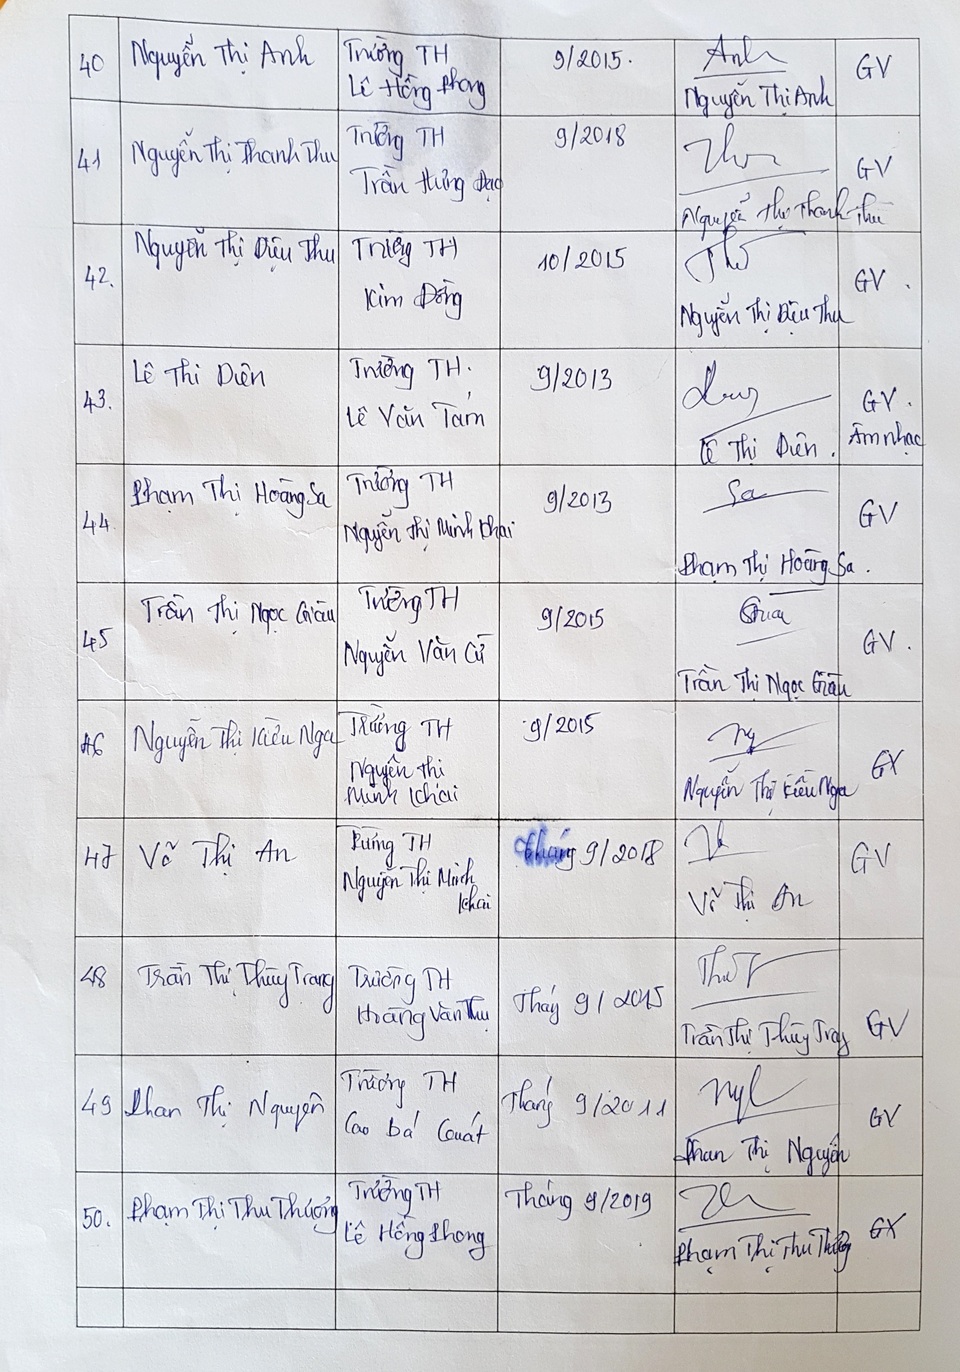 40
Nguyễn Thị Anh
Trường TH
Lê Hồng Phong
9/2015.
Anh
Nguyễn Thị Anh
GV
41
Nguyễn Thị Thanh Thu
Trường TH
Trần Hưng Đạo
9/2018
Nguyễn Thị Thanh Thu
GV
42.
Nguyễn Thị Diệu Thu
Trường TH
Kim Đồng
10/2015
Thu
Nguyễn Thị Diệu Thu
GV.
43.
Lê Thi Diên
Trường TH.
Lê Văn Tám
9/2013
Lê Thị Diên.
GV.
Âm nhạc
44
Phạm Thị Hoàng Sa
Trường TH
Nguyễn Thị Minh Khai
9/2013
Sa
Phạm Thị Hoàng Sa.
GV
45
Trần Thị Ngọc Giàu
Trường TH
Nguyễn Văn Cừ
9/2015
Trần Thị Ngọc Giàu
GV.
46
Nguyễn Thị Kiều Nga
Trường TH
Nguyễn Thị
Minh Khai
9/2015
Nguyễn Thị Kiều Nga
GV
47
Võ Thị An
Trường TH
Nguyễn Thị Minh
Khai
tháng 9/2018
Võ Thị An
GV
48
Trần Thị Thùy Trang
Trường TH
Hoàng Văn Thụ
Tháng 9/2015
Trần Thị Thùy Trang
GV
49
Phan Thị Nguyên
Trường TH
Cao Bá Quát
Tháng 9/2011
Phan Thị Nguyên
GV
50.
Phạm Thị Thu Thương
Trường TH
Lê Hồng Phong
Tháng 9/2019
Phạm Thị Thu Thương
GV